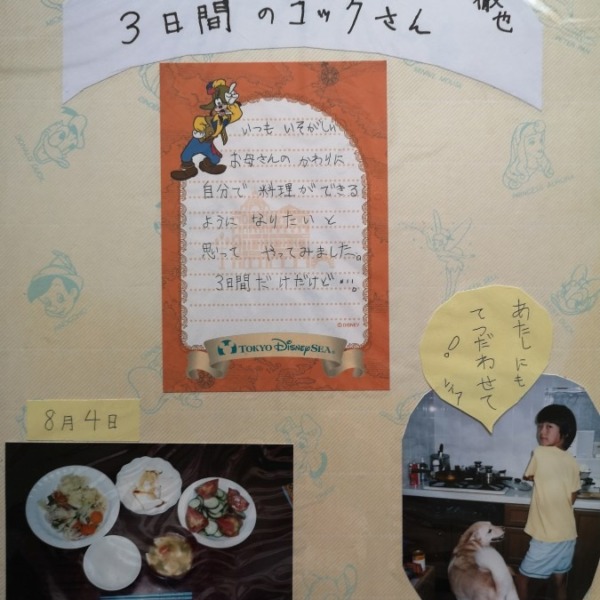 3日間のコックさん
徹也
いつも いそがしい
お母さんの かわりに
自分で 料理ができる
ように なりたいと
思って やってみました。
3日間だけだけど…。
©DISNEY
TOKYO DISNEYSEA®
8月4日
あたしにも
てつだわせて
!